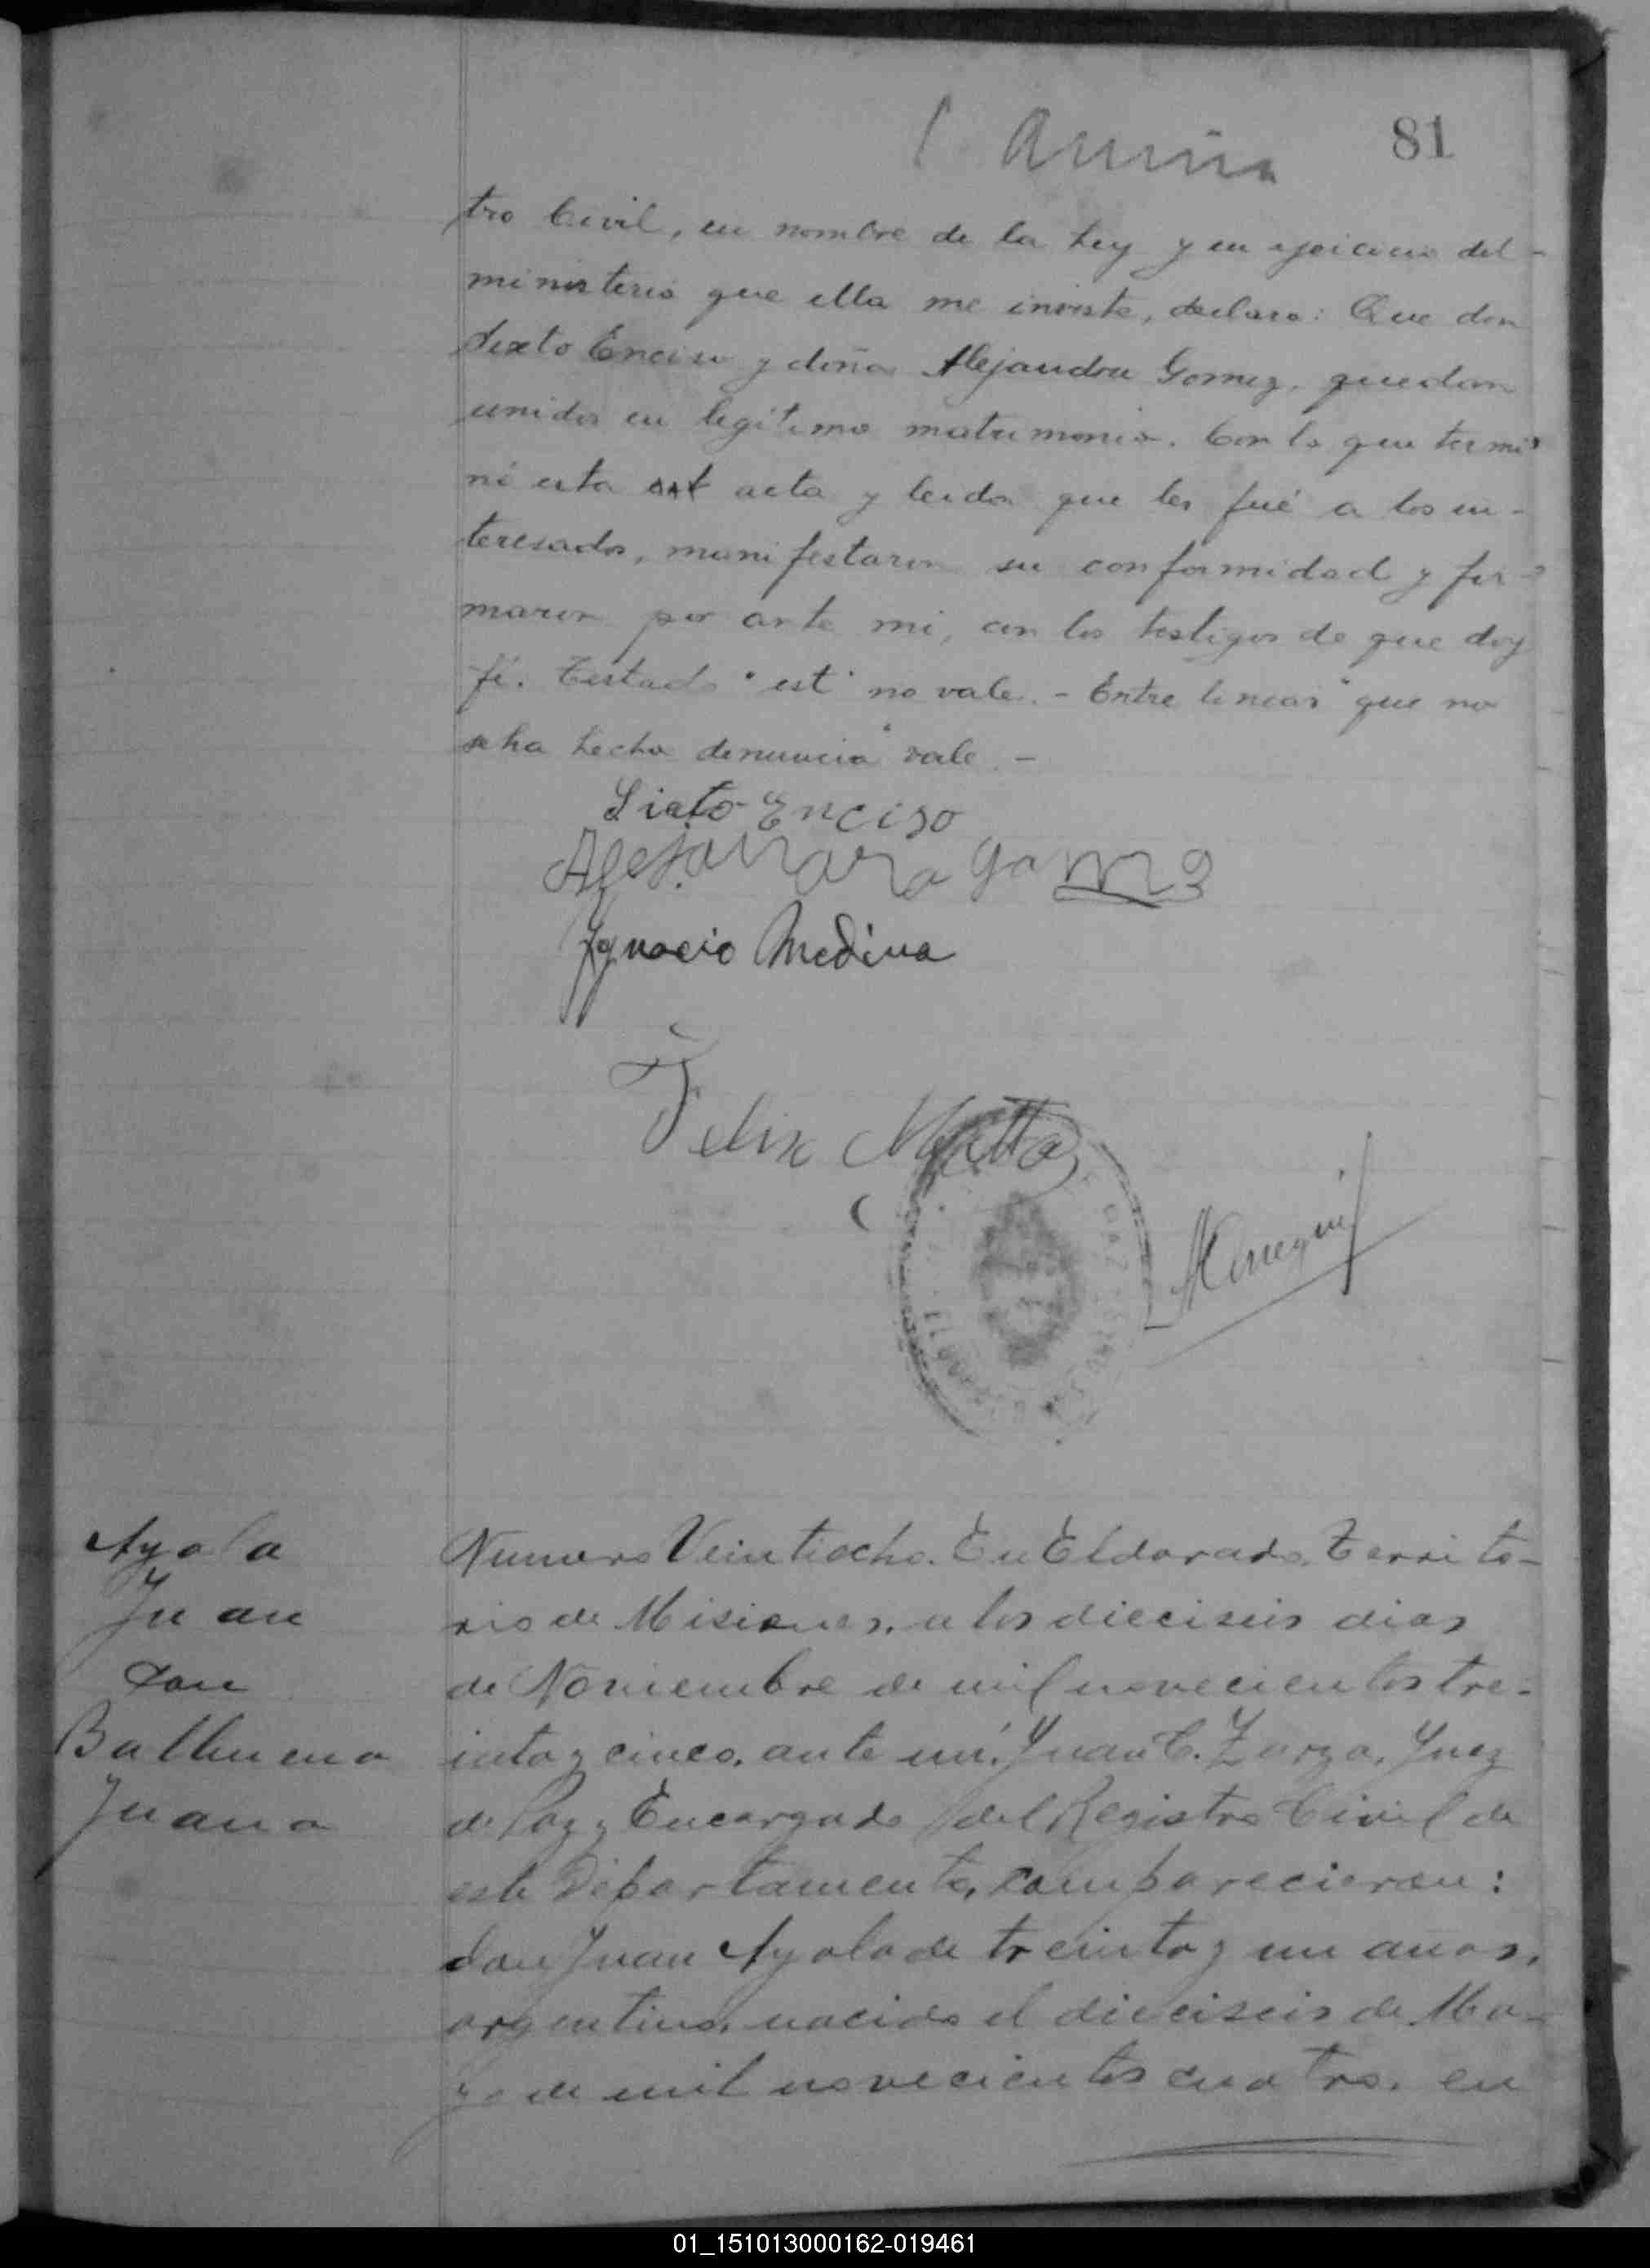 81
tro Civil, en nombre de la Ley y en ejercicio del -
ministerio que ella me inviste, declaro: Que don
Sixto Enciso y doña Alejandra Gomez, quedan
unidos en legítimo matrimonio. Con lo que termi
nó esta est acta y leida que les fué a los in-
teresados, manifestaron su conformidad y fir-
maron por ante mi, con los testigos de que doy
fé. Testado "est" no vale. - Entre lineas "que no
se ha hecho denuncia" vale. -
Sixto Enciso
Alejandra Gomez
Ignacio Medina
Felix Matta
Ayala
Juan
con
Balbuena
Juana
Numero Veintiocho. En Eldorado, Territo-
rio de Misiones, a los dieciseis dias
de Noviembre de mil novecientos tre-
inta y cinco, ante mí, Juan C. Zarza, Juez
de Paz y Encargado del Registro Civil de
este Departamento, comparecieron:
don Juan Ayala de treinta y un años,
argentino, nacido el dieciseis de Ma-
yo de mil novecientos cuatro, en
01_151013000162-019461